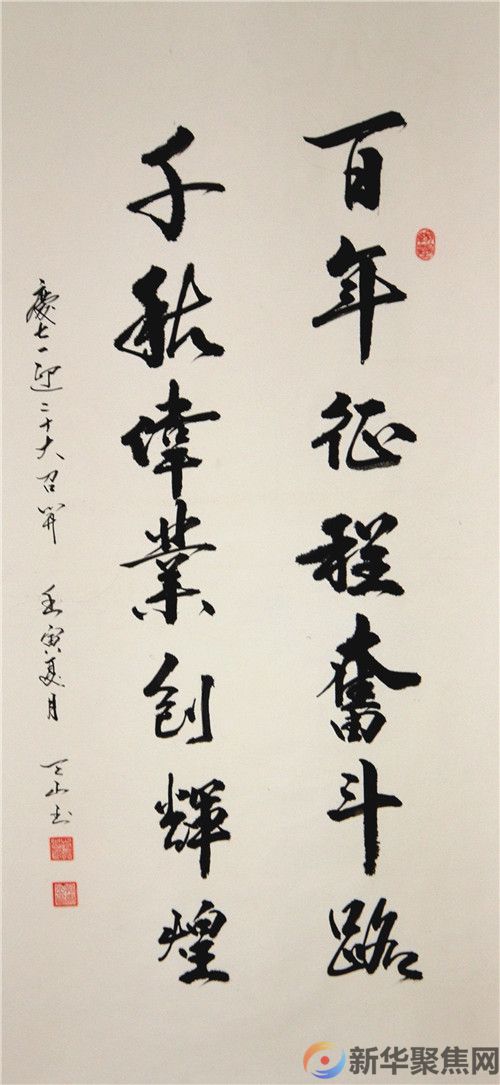 百年征程奮斗路
千秋偉業創輝煌
慶七一迎二十大召開 壬寅夏月 天山书
新华聚焦网